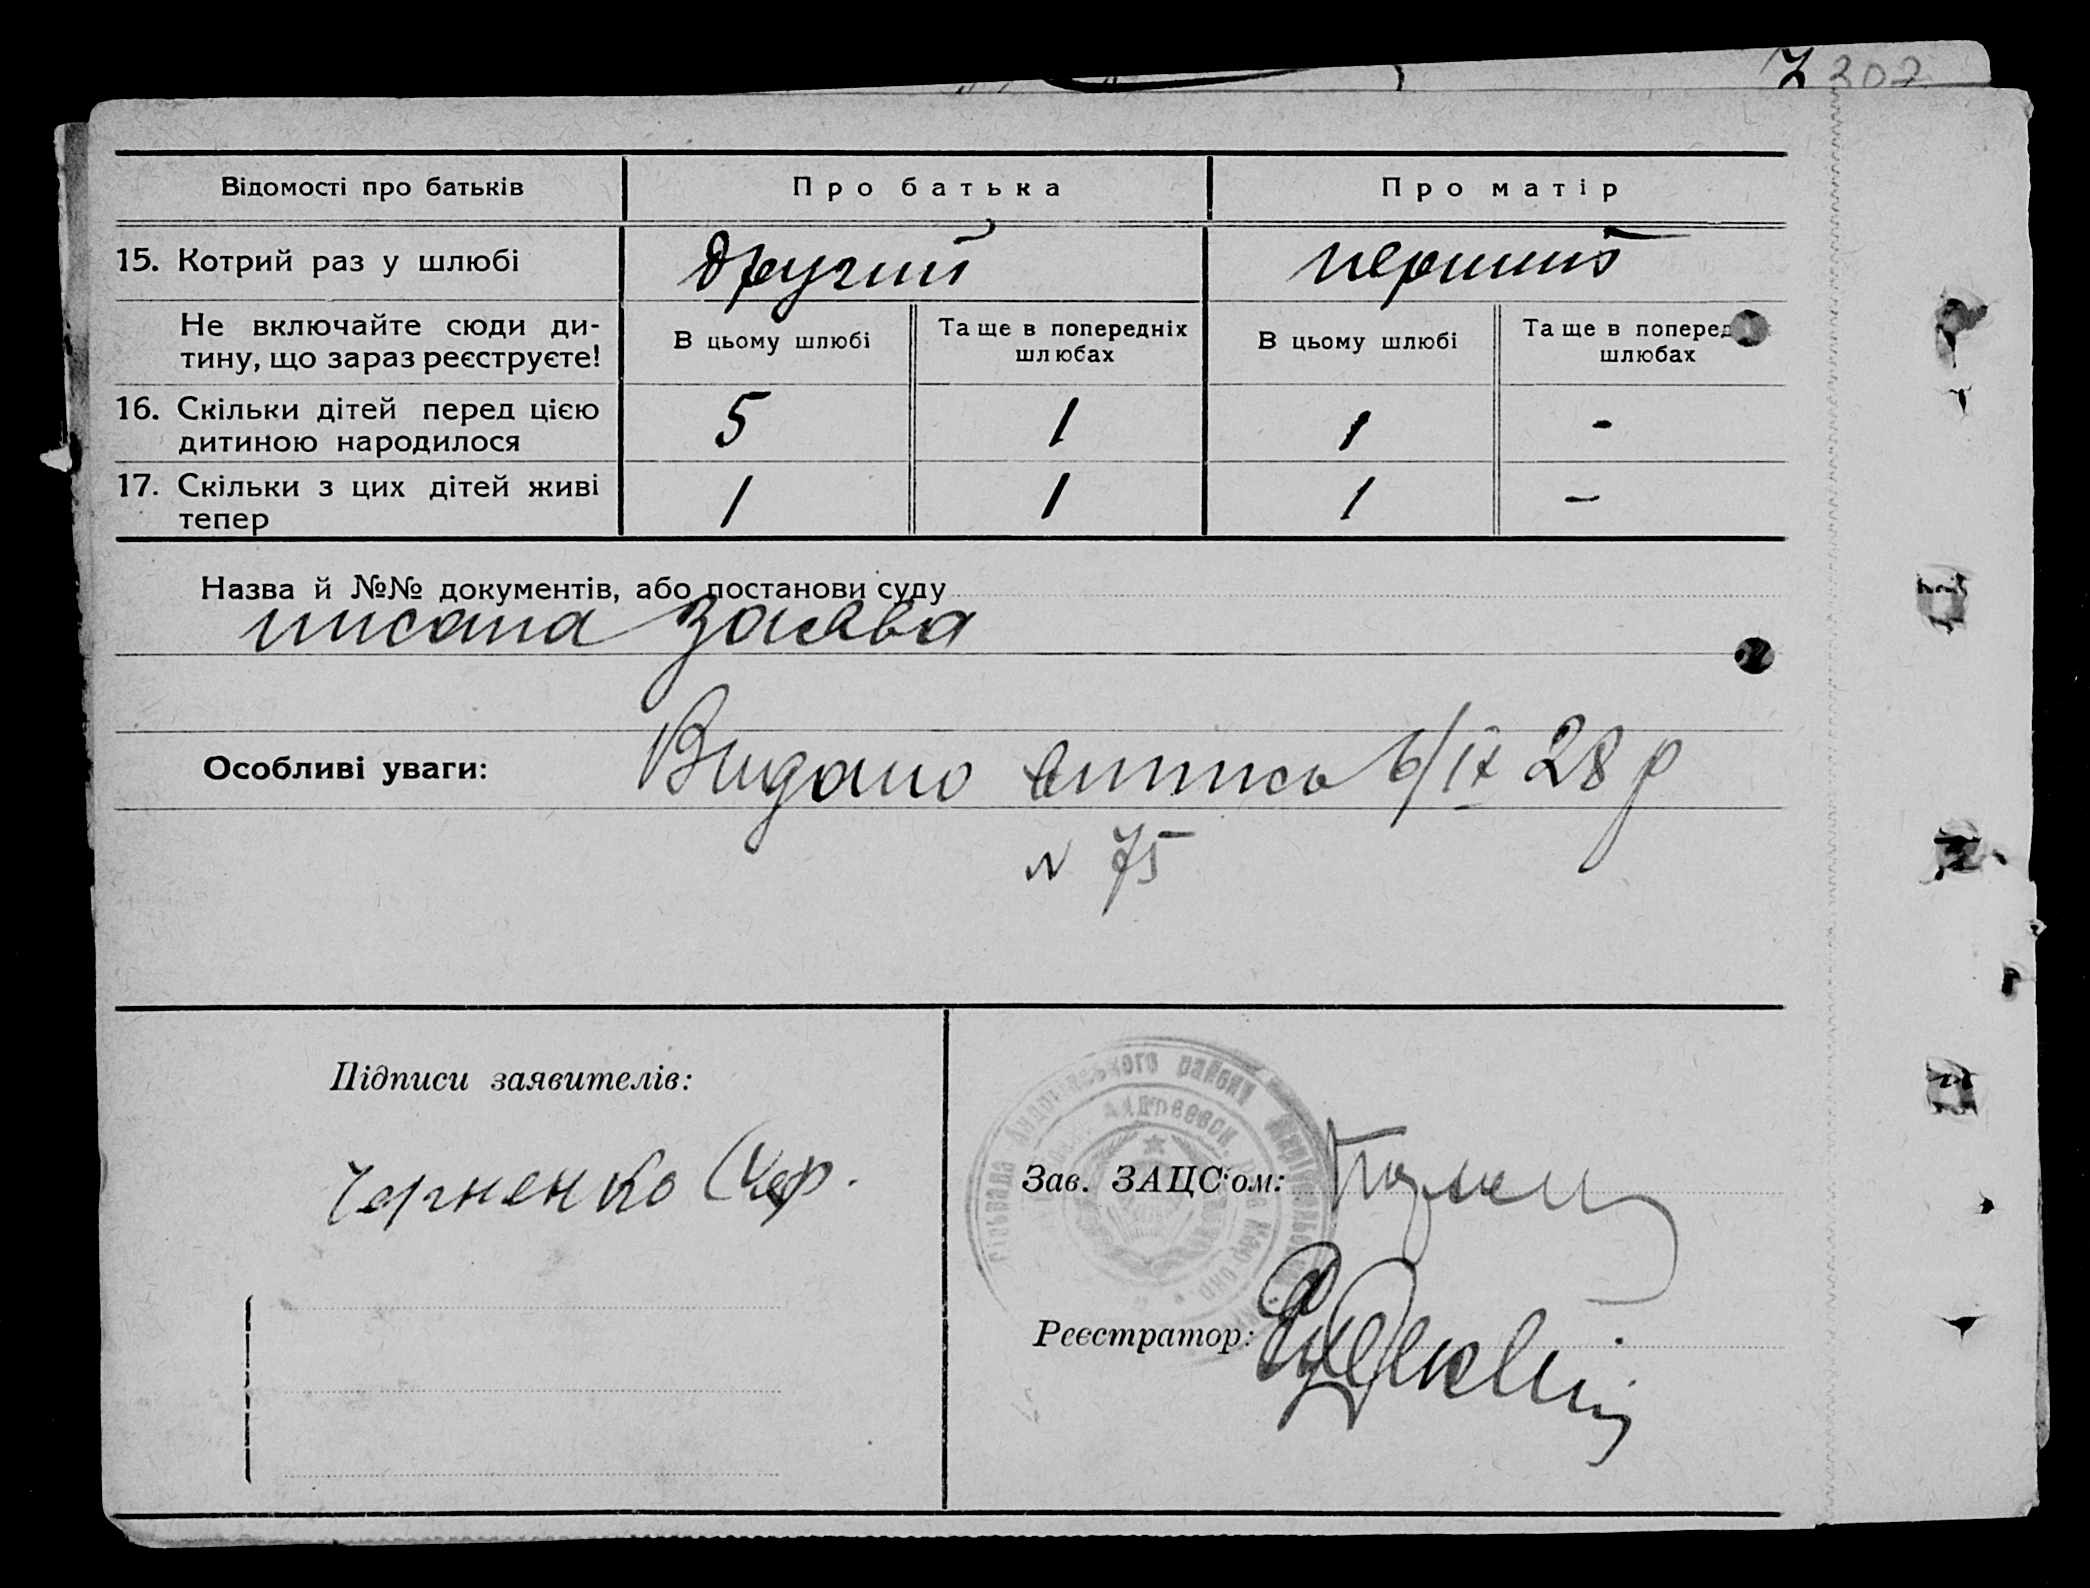 307
Відомості про батьків
Про батька
Про матір
15. Котрий раз у шлюбі
другий
перший
Не включайте сюди ди-
тину, що зараз реєструєте!
В цьому шлюбі
Та ще в попередніх
шлюбах
В цьому шлюбі
Та ще в поперед
шлюбах
16. Скільки дітей перед цією
дитиною народилося
5
1
1
-
17. Скільки з цих дітей живі
тепер
1
1
1
-
Назва й №№ документів, або постанови суду
писана заява
Особливі уваги:
Видано випись 6/IX 28 р
N 75
Підписи заявителів:
Черненко
Зав. ЗАЦС'ом:
Реєстратор: